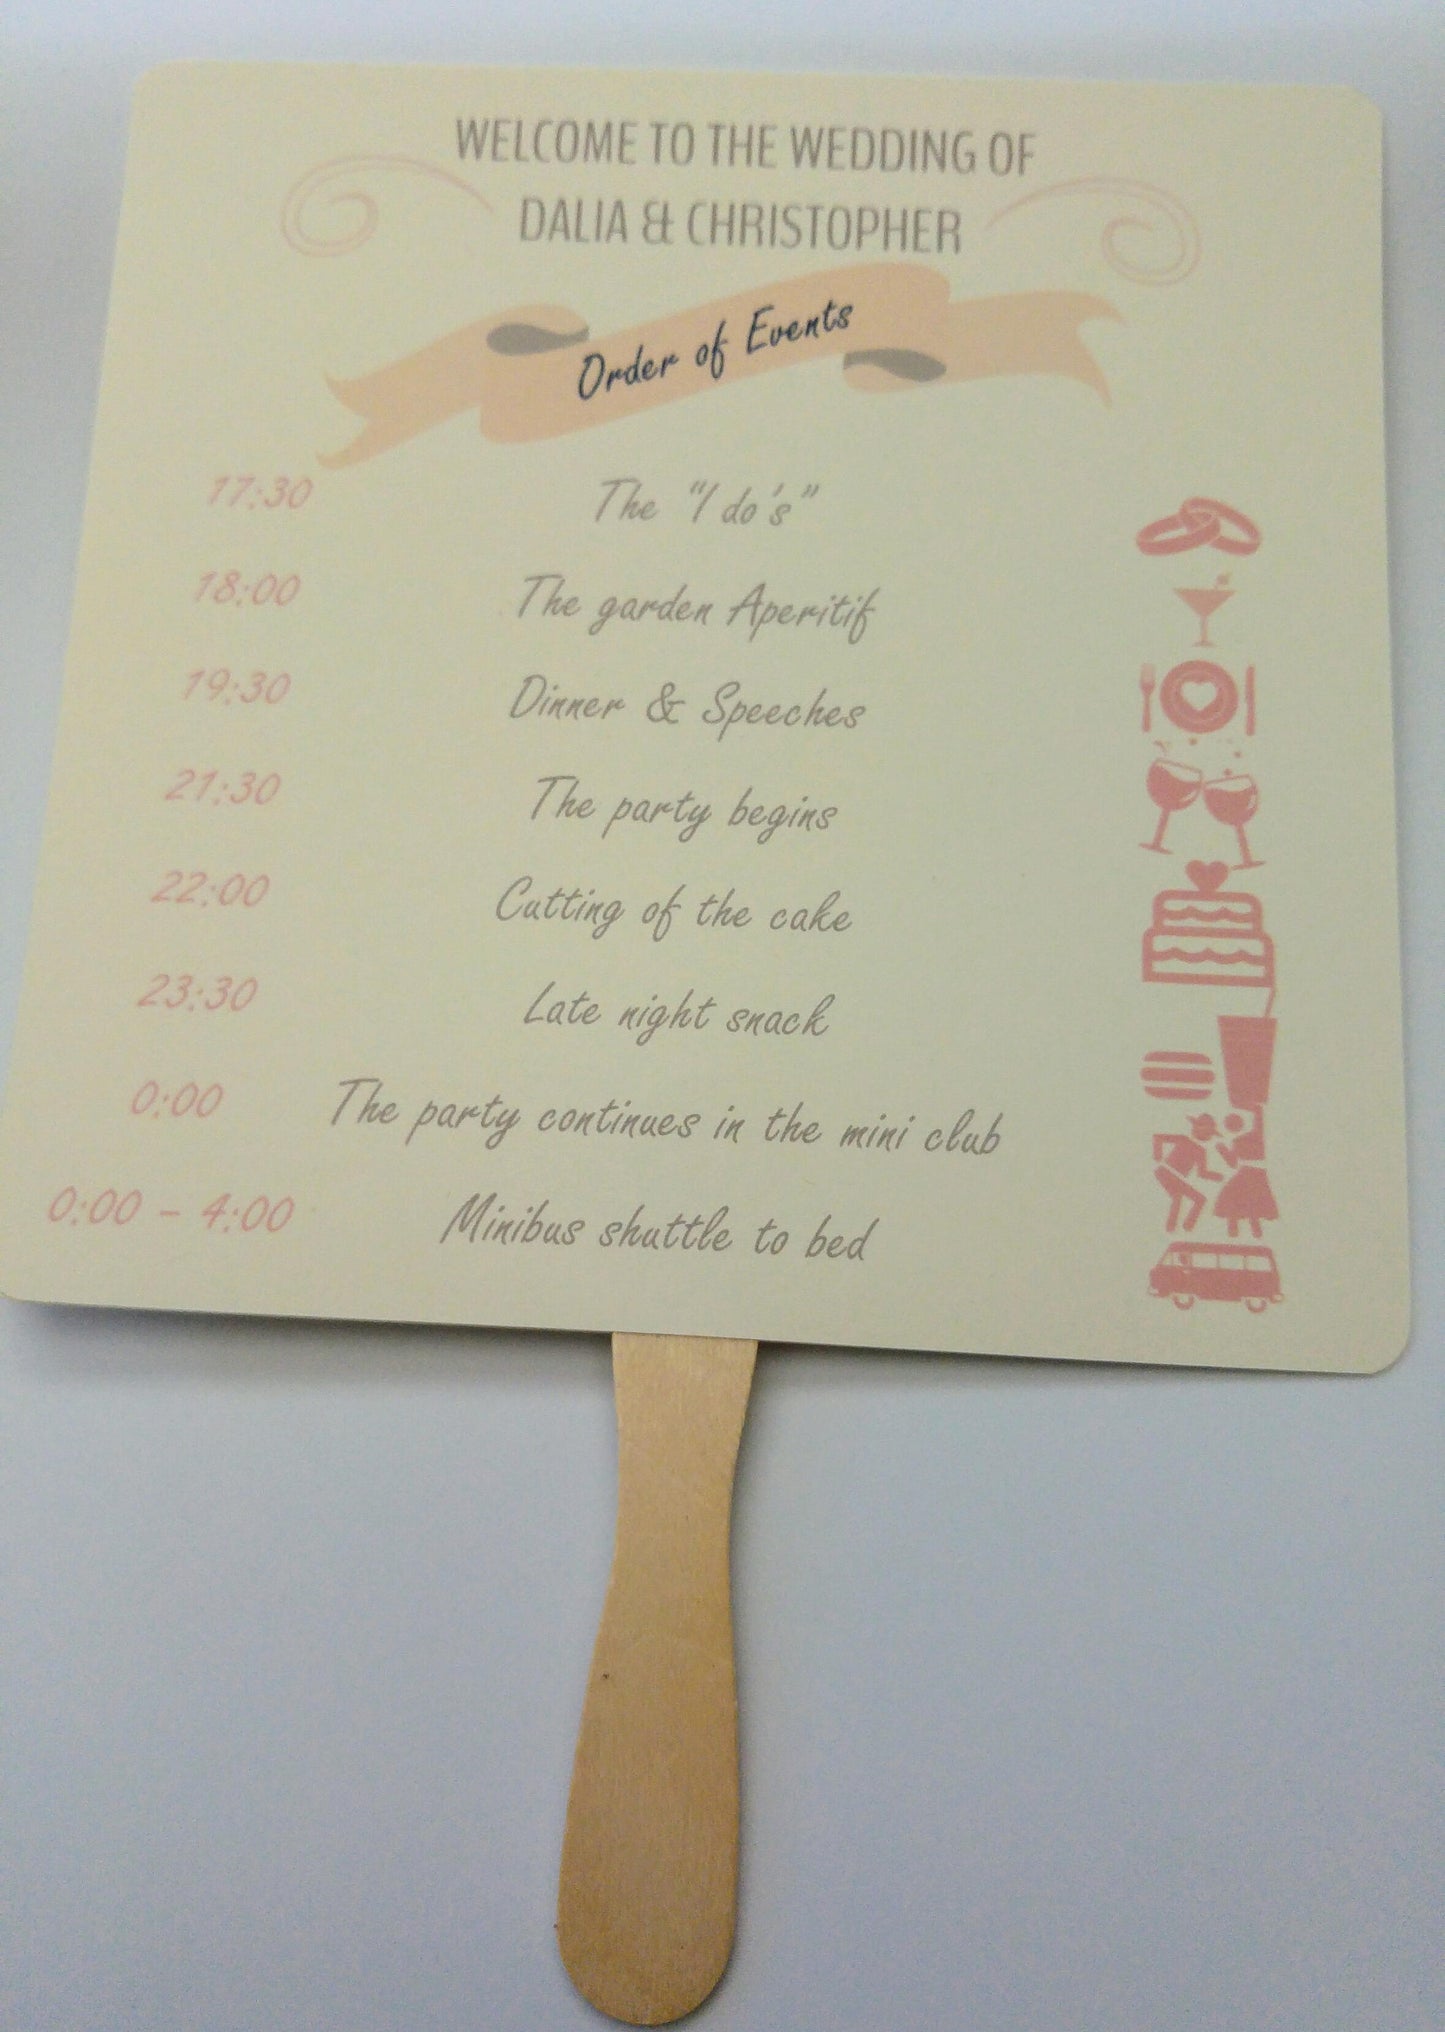 WELCOME TO THE WEDDING OF
DALIA & CHRISTOPHER
Order of Events
17:30 The "I do's"
18:00 The garden Aperitif
19:30 Dinner & Speeches
21:30 The party begins
22:00 Cutting of the cake
23:30 Late night snack
0:00 The party continues in the mini club
0:00 - 4:00 Minibus shuttle to bed